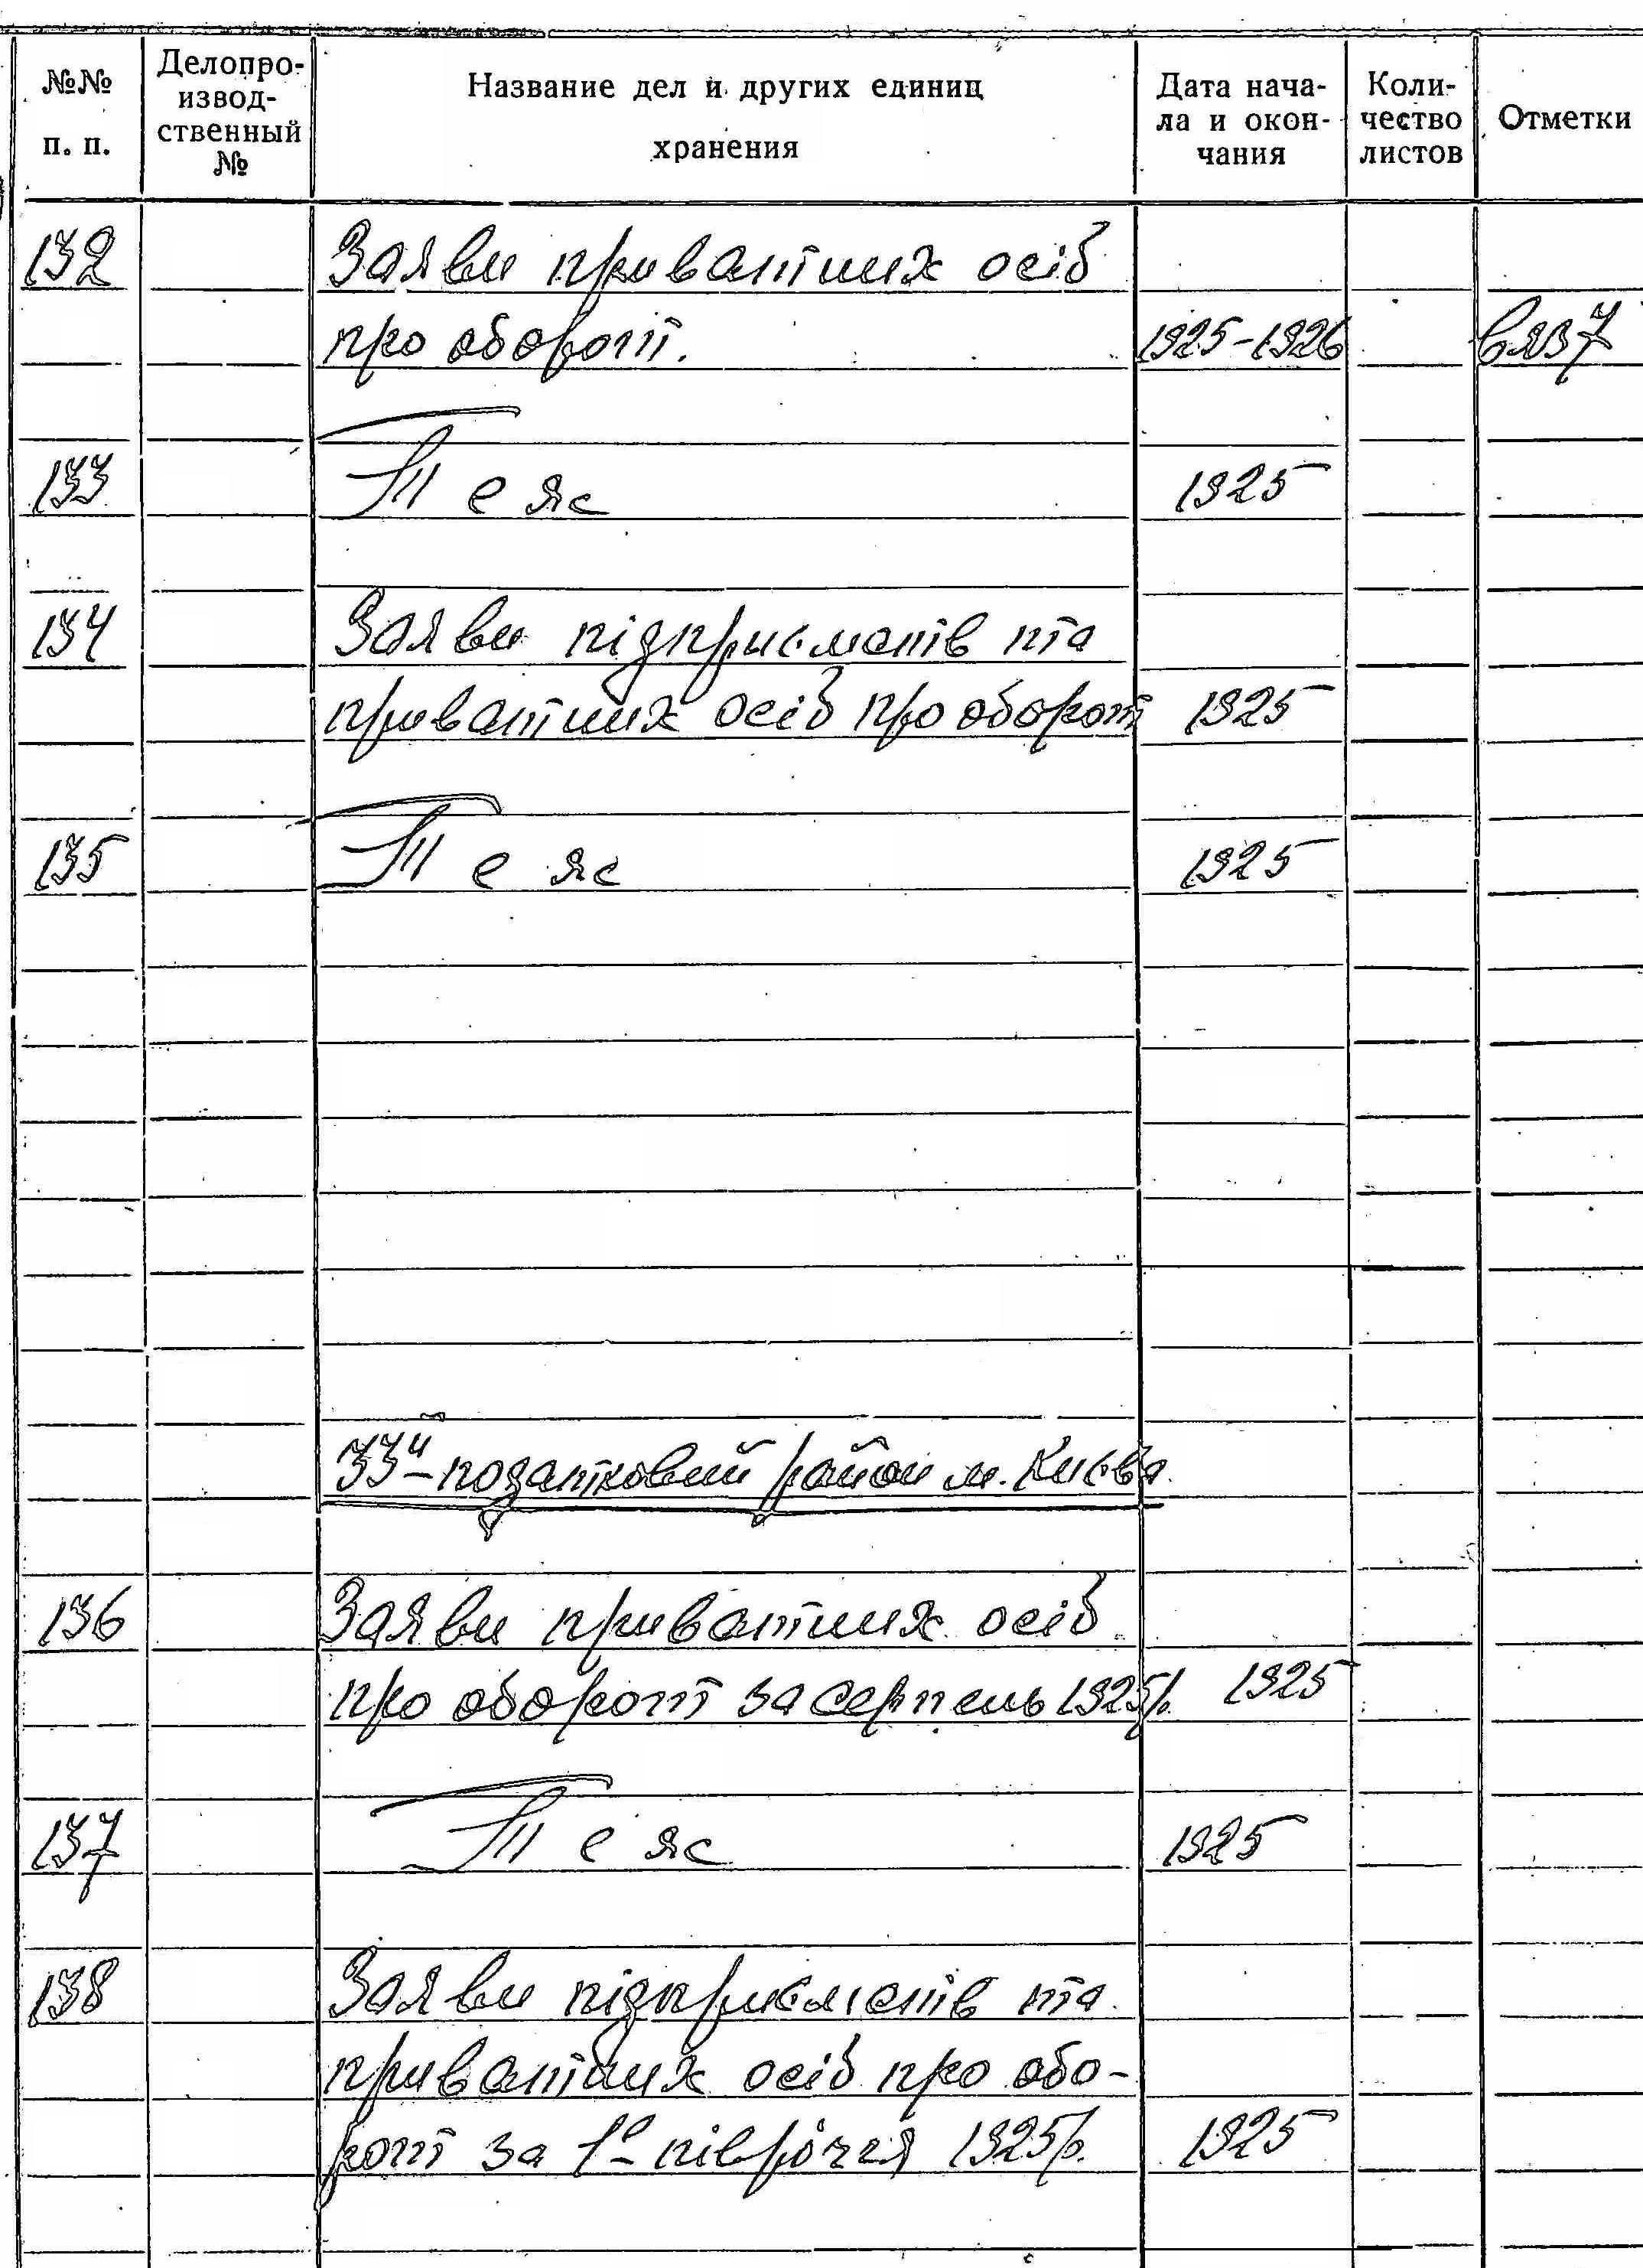 №№ п. п. Делопро- извод- ственный № Название дел и других единиц хранения Дата нача- ла и окон- чания Коли- чество листов Отметки
132 Заяви приватних осіб
про оборот. 1925-1926 вяз 7
133 Те яс 1925
134 Заяви підприємств та
приватних осіб про оборот 1925
135 Те яс 1925
33й - податковий район м. Києва
136 Заяви приватних осіб
про оборот за серпень 1925р. 1925
137 Те яс 1925
138 Заяви підприємств та
приватних осіб про обо-
рот за 1е - півріччя 1925р. 1925